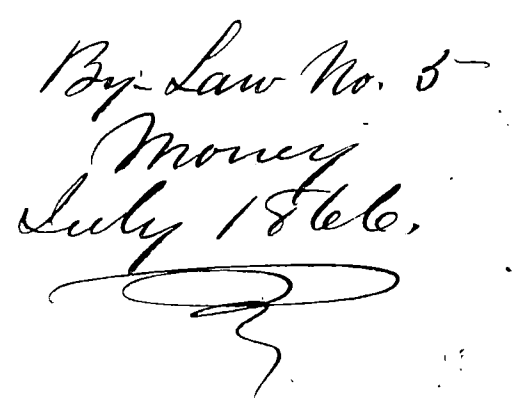 By-Law No. 5
Money
July 1866.